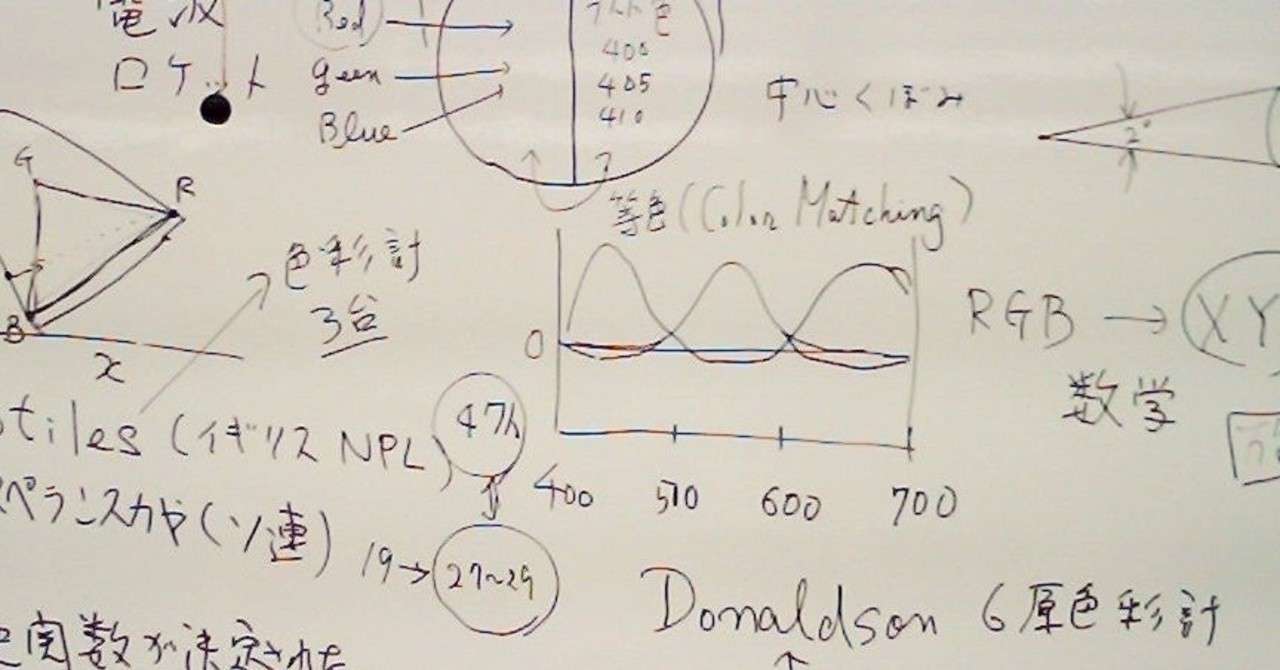 電波
ロケット
Red
geen
Blue
400
405
410
中心くぼみ
2°
G
R
B
x
等色(Color Matching)
色彩計
3台
0
400
510
600
700
RGB → XY
数学
stiles (イギリス NPL)
47人
スペランスカヤ(ソ連)
19→
27~29
Donaldson 6原色彩計
関数が決定された